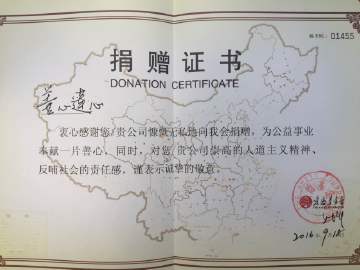 01455
捐赠证书
DONATION CERTIFICATE
善心莲心
衷心感谢您/贵公司慷慨无私地向我会捐赠，为公益事业
奉献一片善心。同时，对您/贵公司崇高的人道主义精神、
反哺社会的责任感，谨表示诚挚的敬意。
2016.9.18